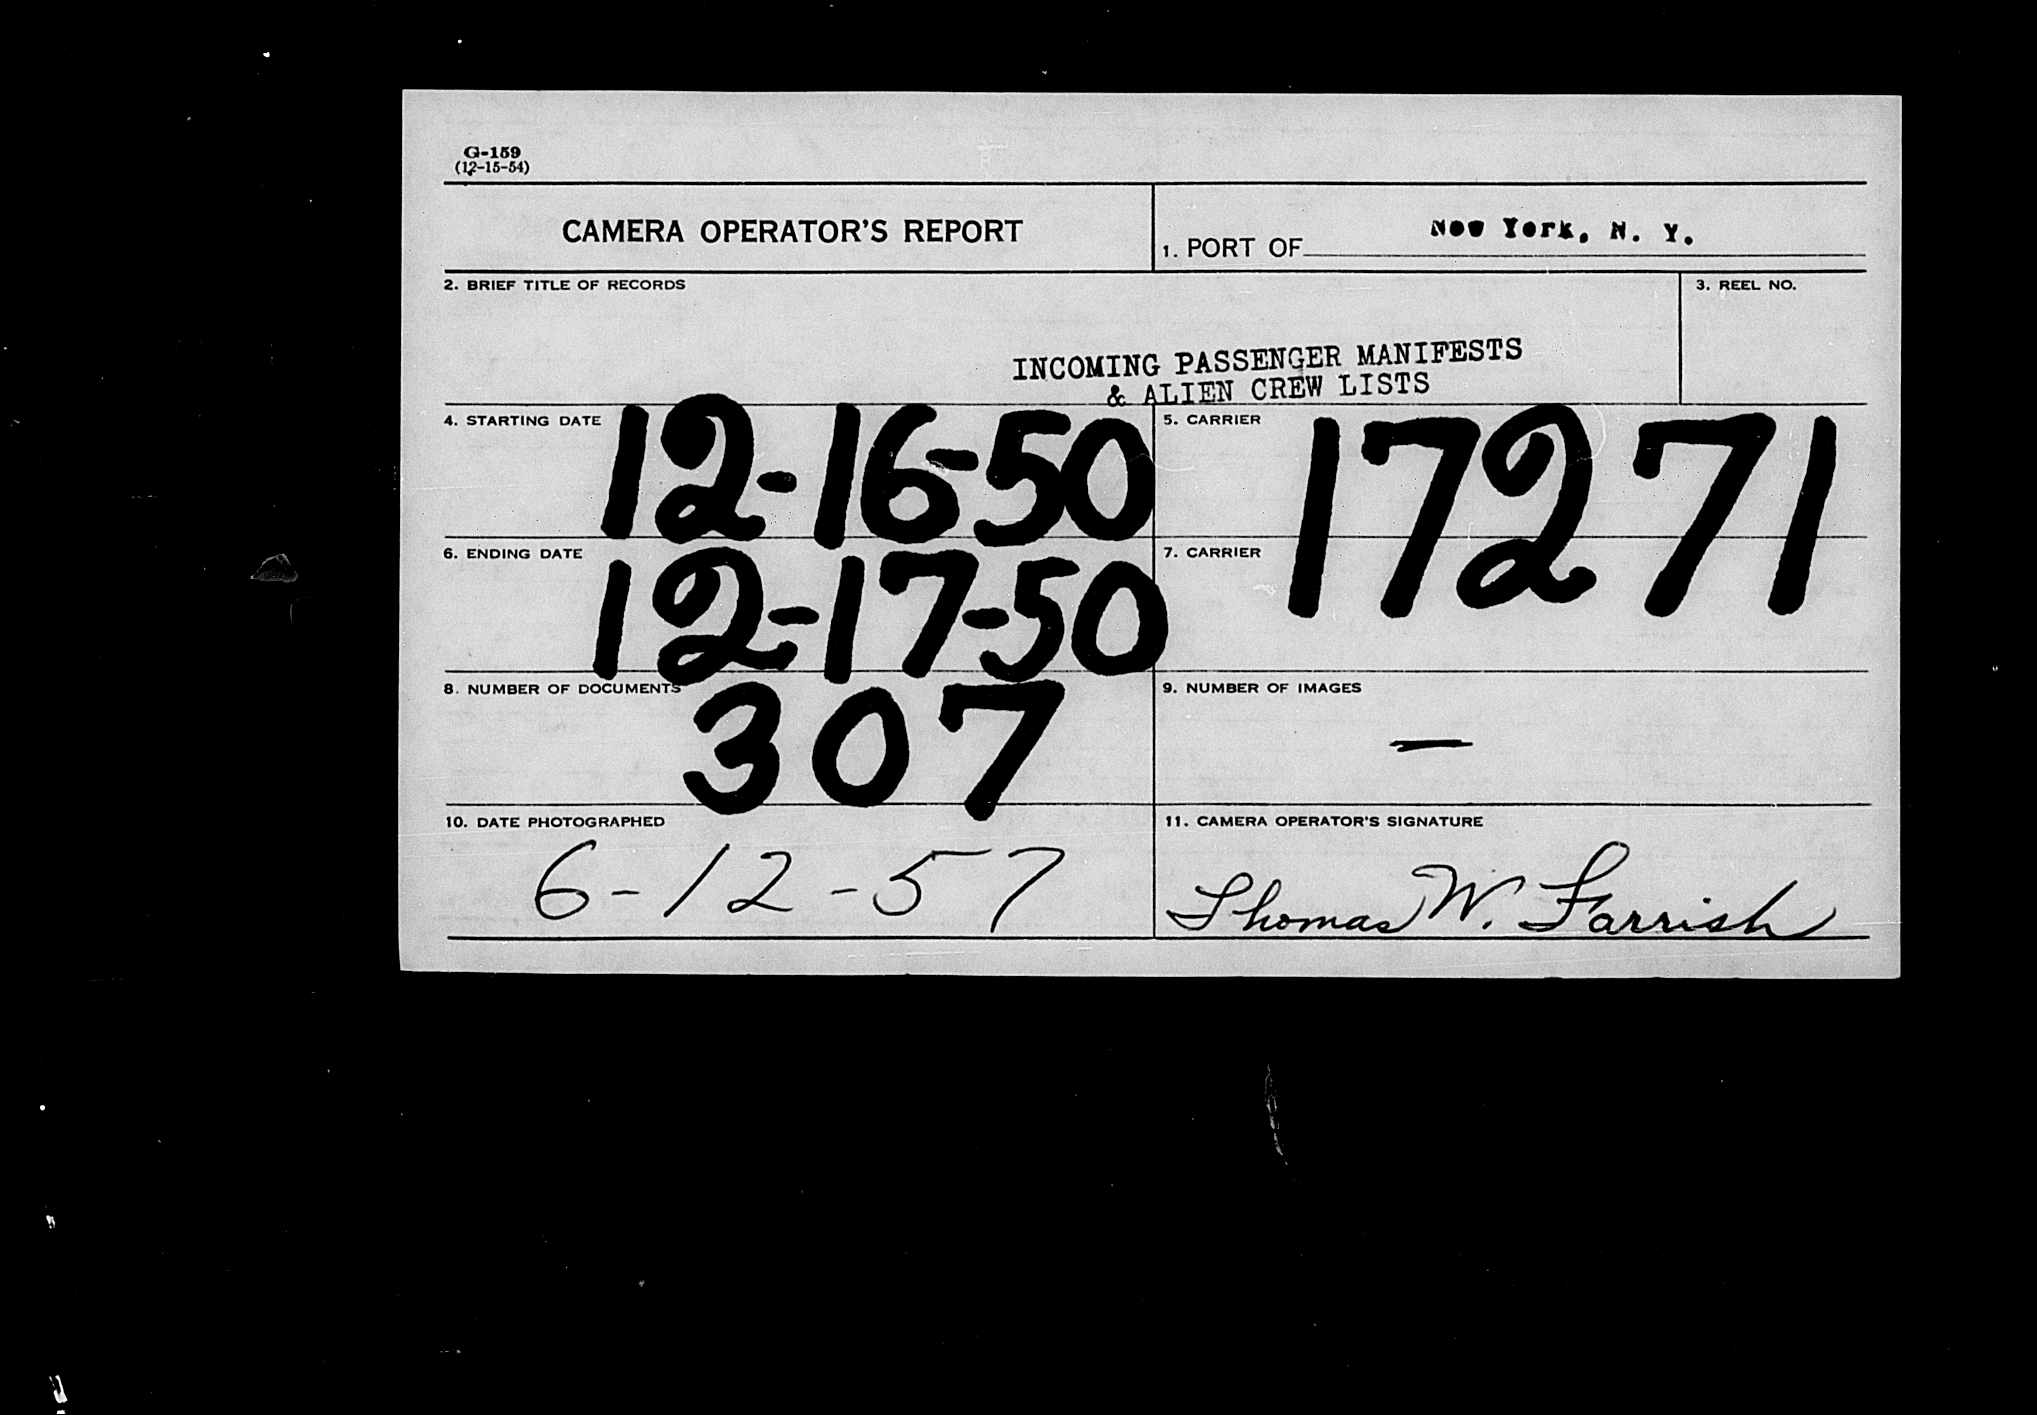 G-159
(12-15-54)
CAMERA OPERATOR'S REPORT
1. PORT OF New York, N. Y.
2. BRIEF TITLE OF RECORDS
3. REEL NO.
INCOMING PASSENGER MANIFESTS
& ALIEN CREW LISTS
4. STARTING DATE 12-16-50
5. CARRIER 17271
6. ENDING DATE 12-17-50
7. CARRIER
8. NUMBER OF DOCUMENTS 307
9. NUMBER OF IMAGES —
10. DATE PHOTOGRAPHED
6-12-57
11. CAMERA OPERATOR'S SIGNATURE
Thomas W. Farrish